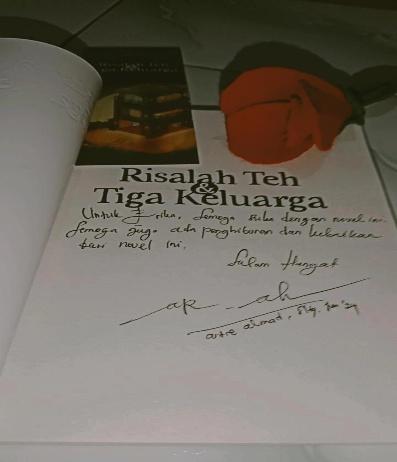 Risalah Teh
& Tiga Keluarga
Risalah Teh
&
Tiga Keluarga
Untuk Erika, Semoga suka dengan novel ini.
Semoga juga ada penghiburan dan kebaikan
dari novel ini.
Salam Hangat
artie ahmad,